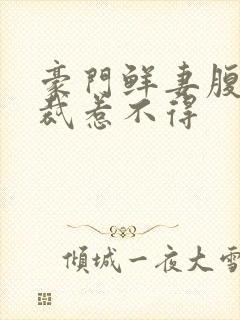 豪門鮮妻腹
裁惹不得
傾城一夜大雪